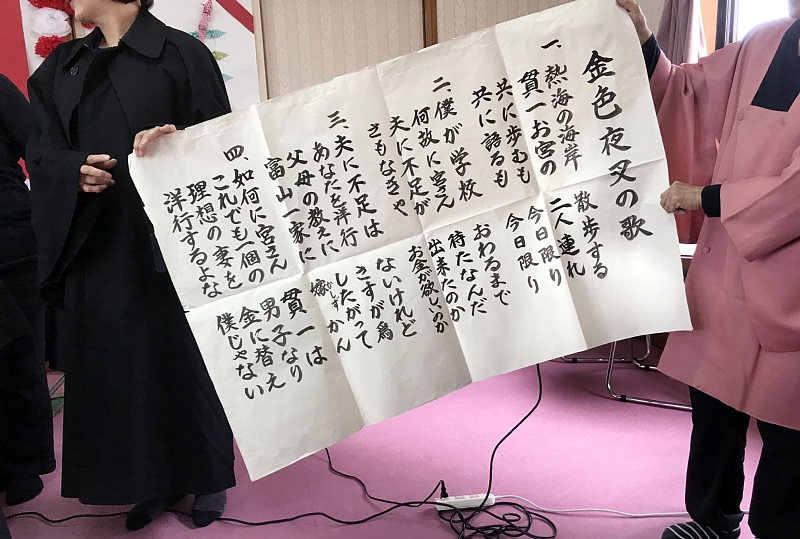 金色夜叉の歌
一、熱海の海岸 散歩する
貫一お宮の 二人連れ
共に歩むも 今日限り
共に語るも 今日限り
二、僕が学校 おわるまで
何故に宮さん 待たなんだ
夫に不足が 出来たのか
さもなきゃ お金が欲しいのか
三、夫に不足は ないけれど
あなたを洋行 さすが為
父母の教えに したがって
富山一家に 嫁かしずかん
四、如何に宮さん 貫一は
これでも一個の 男子なり
理想の妻を 金に替え
洋行するよな 僕じゃない